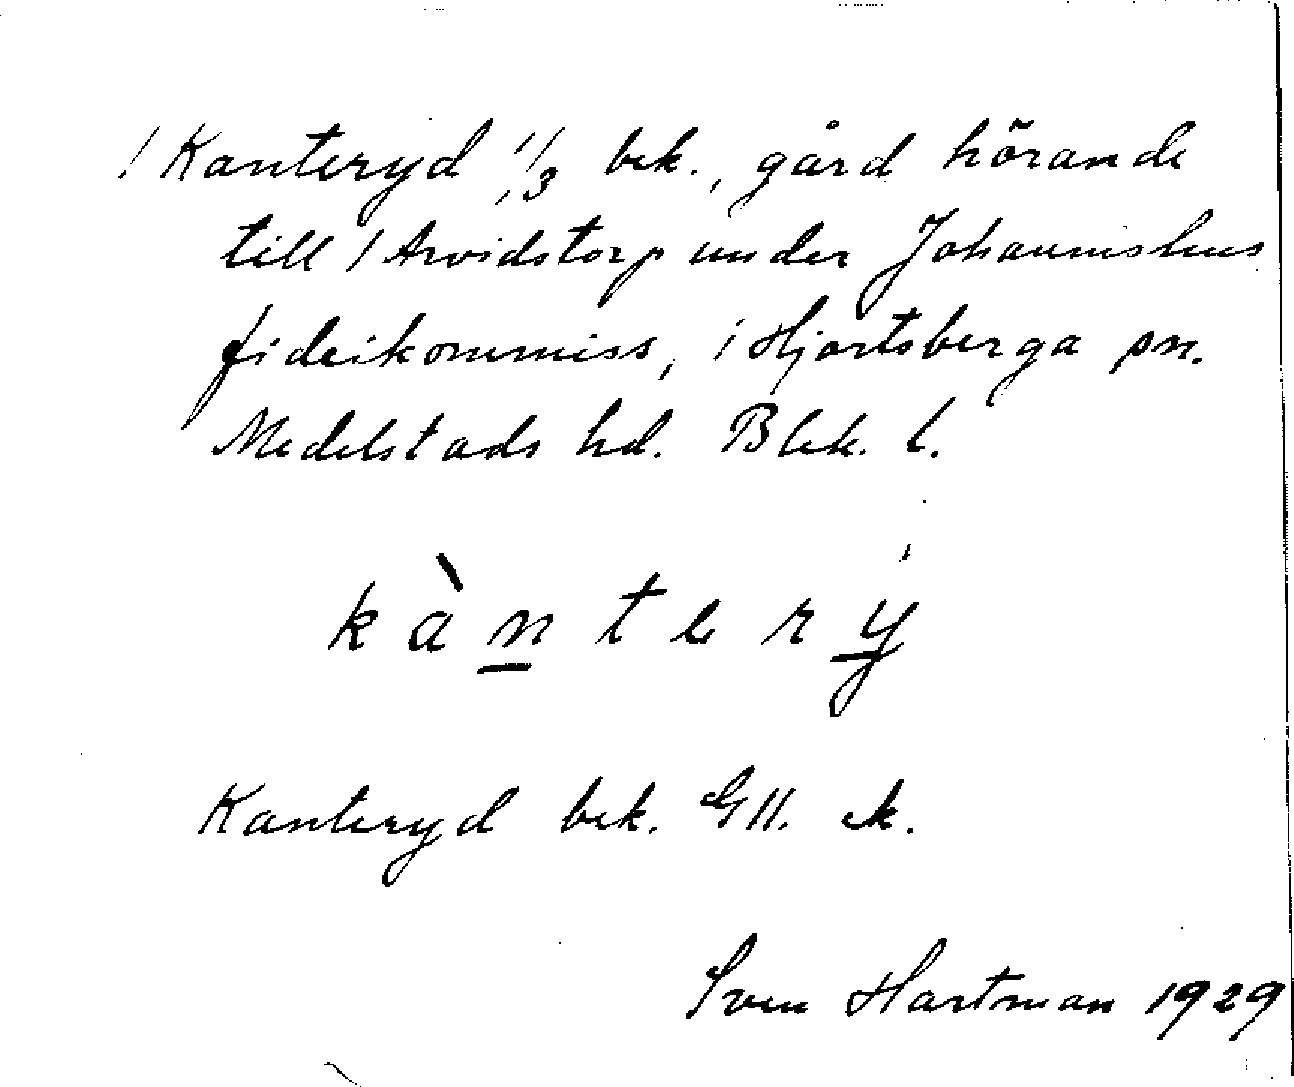 / Kanteryd 1/3 bek., gård hörande
till / Arvidstorp under Johannishus
fideikommiss, i Hjortsberga sn.
Medelstads hd. Blek. l.
kàntery
Kanteryd bek. Gll. ek.
Sven Hartman 1929